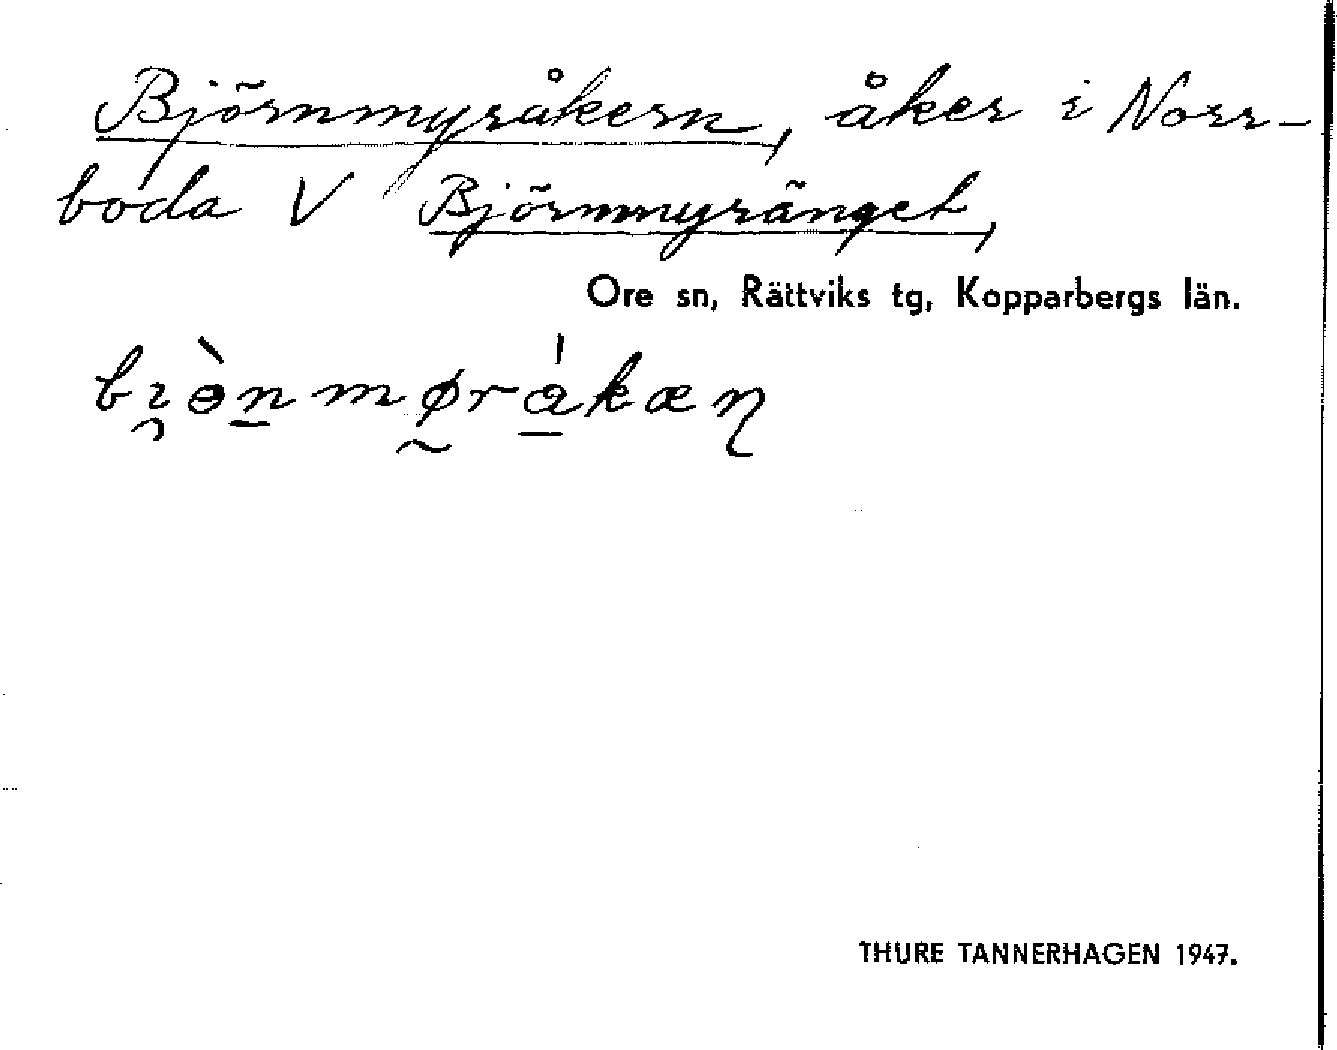 Björnmyråkern, åker i Norr-
boda V Björnmyränget,
Ore sn, Rättviks tg, Kopparbergs län.
bı̯ɵ̀n̲mø̰rá̲kæɳ
THURE TANNERHAGEN 1947.